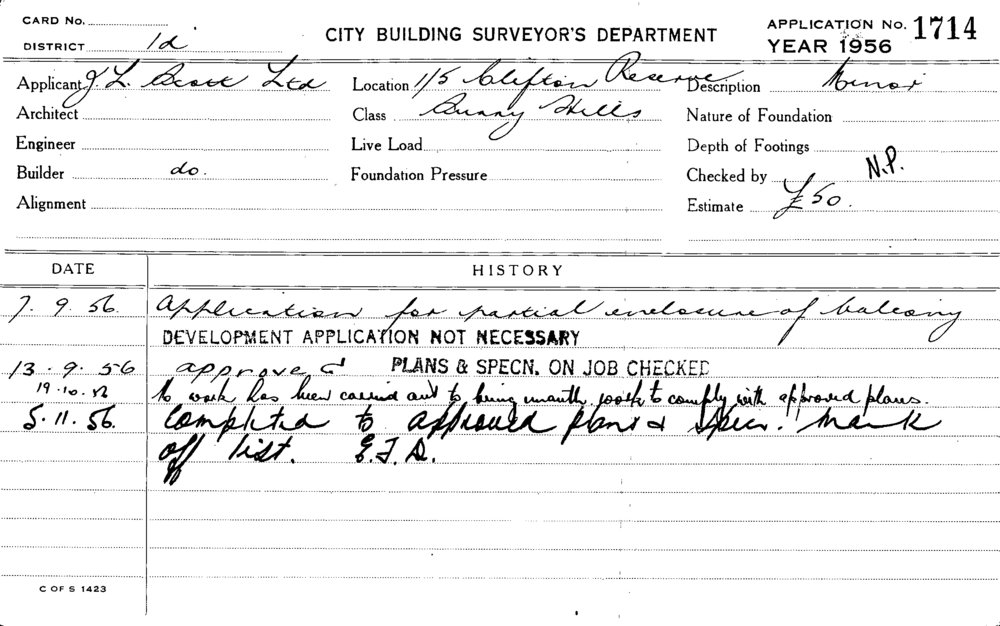 CARD No.
DISTRICT 1d
CITY BUILDING SURVEYOR'S DEPARTMENT
APPLICATION No. 1714
YEAR 1956
Applicant J. L. Scott Ltd Location 1/5 Clifton Reserve Description Minor
Architect Class Surry Hills Nature of Foundation
Engineer Live Load Depth of Footings
Builder do. Foundation Pressure Checked by N.P.
Alignment Estimate £50.
DATE HISTORY
7. 9. 56. Application for partial enclosure of balcony
DEVELOPMENT APPLICATION NOT NECESSARY
13. 9. 56 approved PLANS & SPECN. ON JOB CHECKED
19.10. work has been carried out to work to comply with approved plans.
5. 11. 56. Completed to approved plans & Specn. Mark
off list.
C OF S 1423